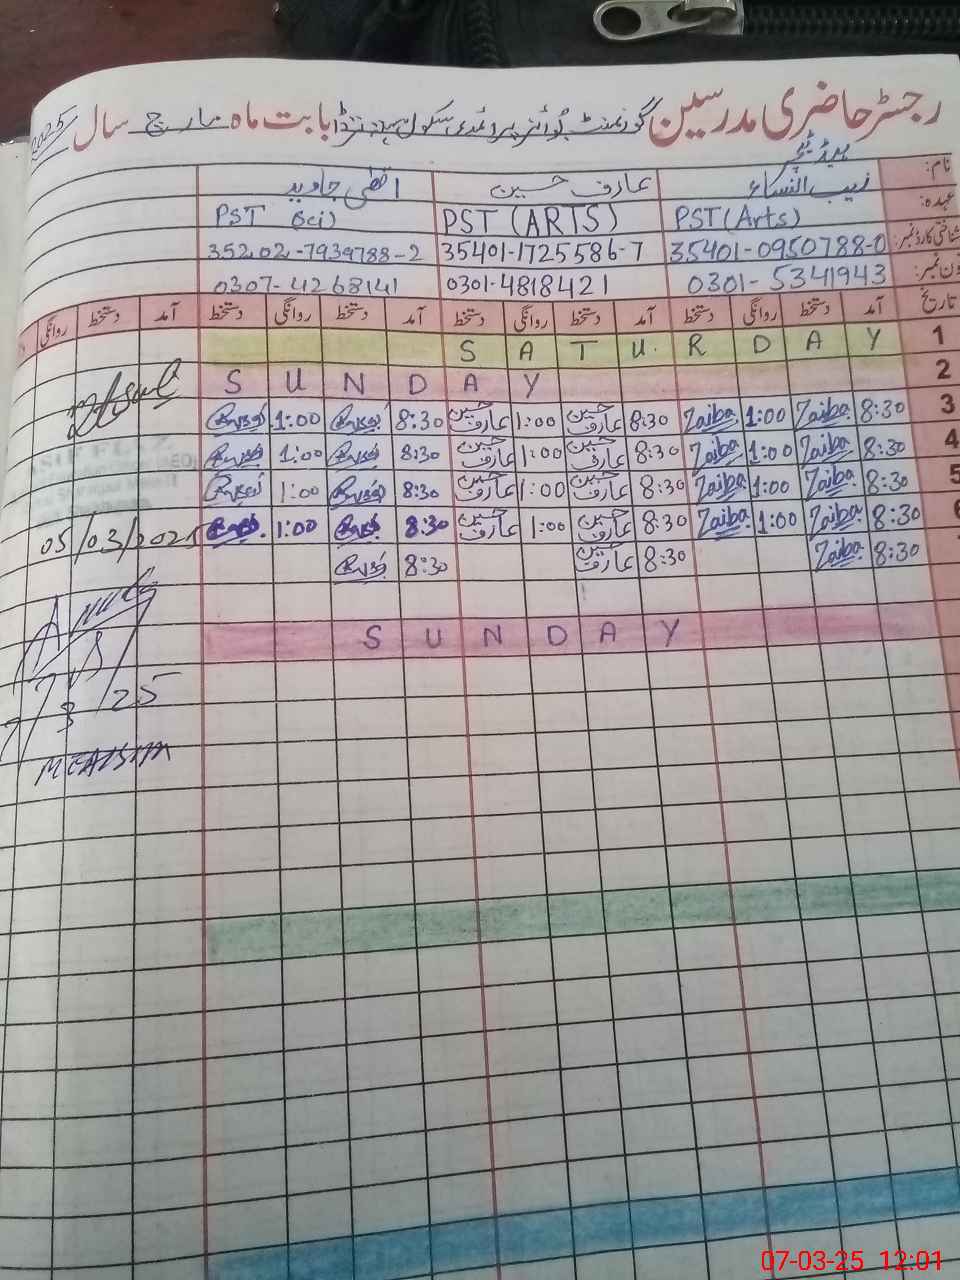 رجسٹر حاضری مدرسین گورنمنٹ بوائز پرائمری سکول بابت ماہ مارچ سال 2025
ہیڈ ٹیچر
نام: زیب النساء عارف حسین جاوید
عہدہ: PST (Arts) PST (ARTS) PST (Sci)
شناختی کارڈ نمبر: 35401-0950788-0 35401-1725586-7 35202-7939788-2
فون نمبر: 0301-5341943 0301-4818421 0307-4268141
تاریخ آمد دستخط روانگی دستخط آمد دستخط روانگی دستخط آمد دستخط روانگی دستخط آمد دستخط روانگی
1 SATURDAY
2 SUNDAY
3 8:30 Zaiba 1:00 Zaiba 8:30 عارف حسین 1:00 عارف حسین 8:30 1:00
4 8:30 Zaiba 1:00 Zaiba 8:30 عارف حسین 1:00 عارف حسین 8:30 1:00
5 8:30 Zaiba 1:00 Zaiba 8:30 عارف حسین 1:00 عارف حسین 8:30 1:00
6 8:30 Zaiba 1:00 Zaiba 8:30 عارف حسین 1:00 عارف حسین 8:30 1:00
05/03/2025
8:30 Zaiba 8:30 عارف حسین 8:30
SUNDAY
7/3/25
07-03-25 12:01